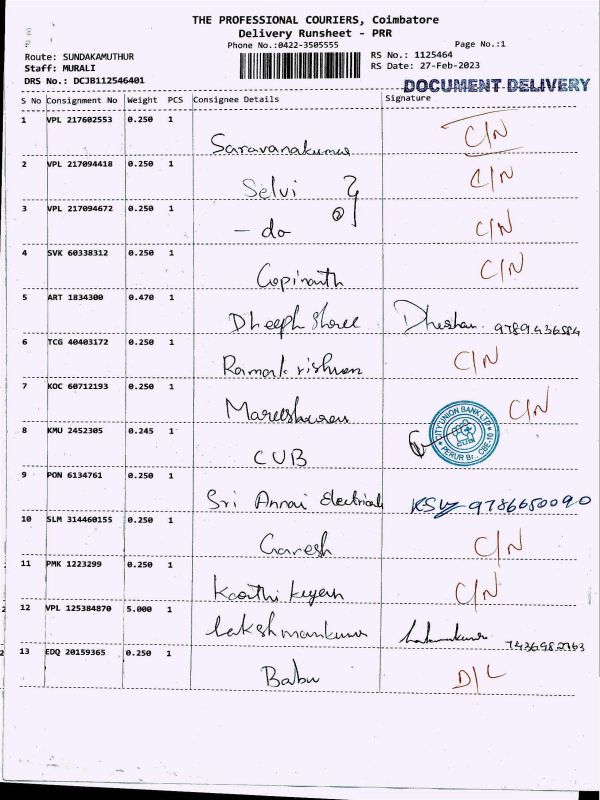 THE PROFESSIONAL COURIERS, Coimbatore
Delivery Runsheet - PRR
Phone No.:0422-3505555 Page No.:1
Route: SUNDAKAMUTHUR RS No.: 1125464
Staff: MURALI RS Date: 27-Feb-2023
DRS No.: DCJB112546401
DOCUMENT DELIVERY
S No Consignment No Weight PCS Consignee Details Signature
1 VPL 217602553 0.250 1
Saravanakumar C/N
2 VPL 217094418 0.250 1
Selvi C/N
3 VPL 217094672 0.250 1
- do C/N
4 SVK 60338312 0.250 1
Gopinath C/N
5 ART 1834300 0.470 1
Dheephshree Dheshan 9789436584
6 TCG 40403172 0.250 1
Ramakrishnan C/N
7 KOC 60712193 0.250 1
Mareeshwaran C/N
8 KMU 2452305 0.245 1
CUB CITY UNION BANK LTD CUB PERUR Br., CBE-10
9 PON 6134761 0.250 1
Sri Annai Electricals 9786650090
10 SLM 314460155 0.250 1
Ganesh C/N
11 PMK 1223299 0.250 1
Karthikeyan C/N
12 VPL 125384870 5.000 1
Lakshmankumar 7436982763
13 EDQ 20159365 0.250 1
Babu D/L